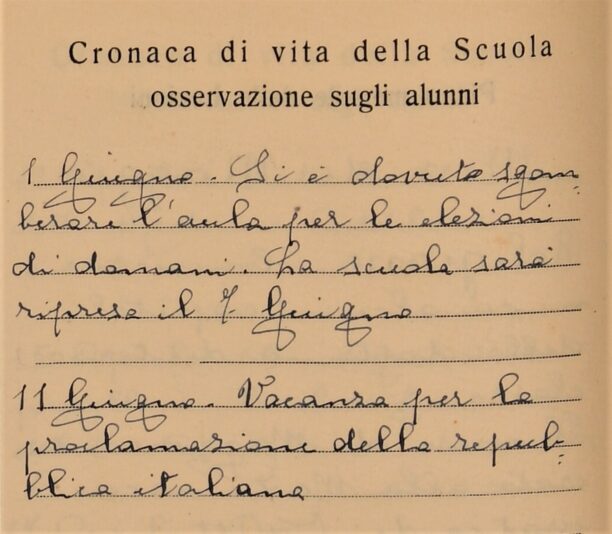 Cronaca di vita della Scuola
osservazione sugli alunni
1 Giugno. Si è dovuto sgom-
berare l'aula per le elezioni
di domani. La scuola sarà
ripresa il 7 Giugno
11 Giugno. Vacanza per la
proclamazione della repub-
blica italiana